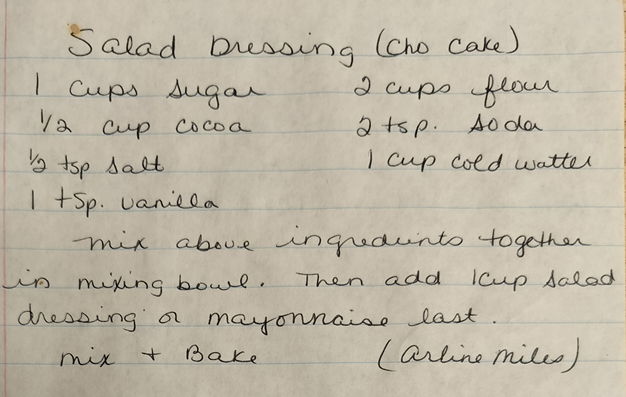 Salad Dressing (Cho Cake)
1 Cups sugar 2 cups flour
1/2 cup cocoa 2 tsp. soda
1/2 tsp salt 1 cup cold watter
1 tsp. vanilla
mix above ingrediunts together
in mixing bowl. Then add 1 cup salad
dressing or mayonnaise last.
mix + Bake (Arline Miles)